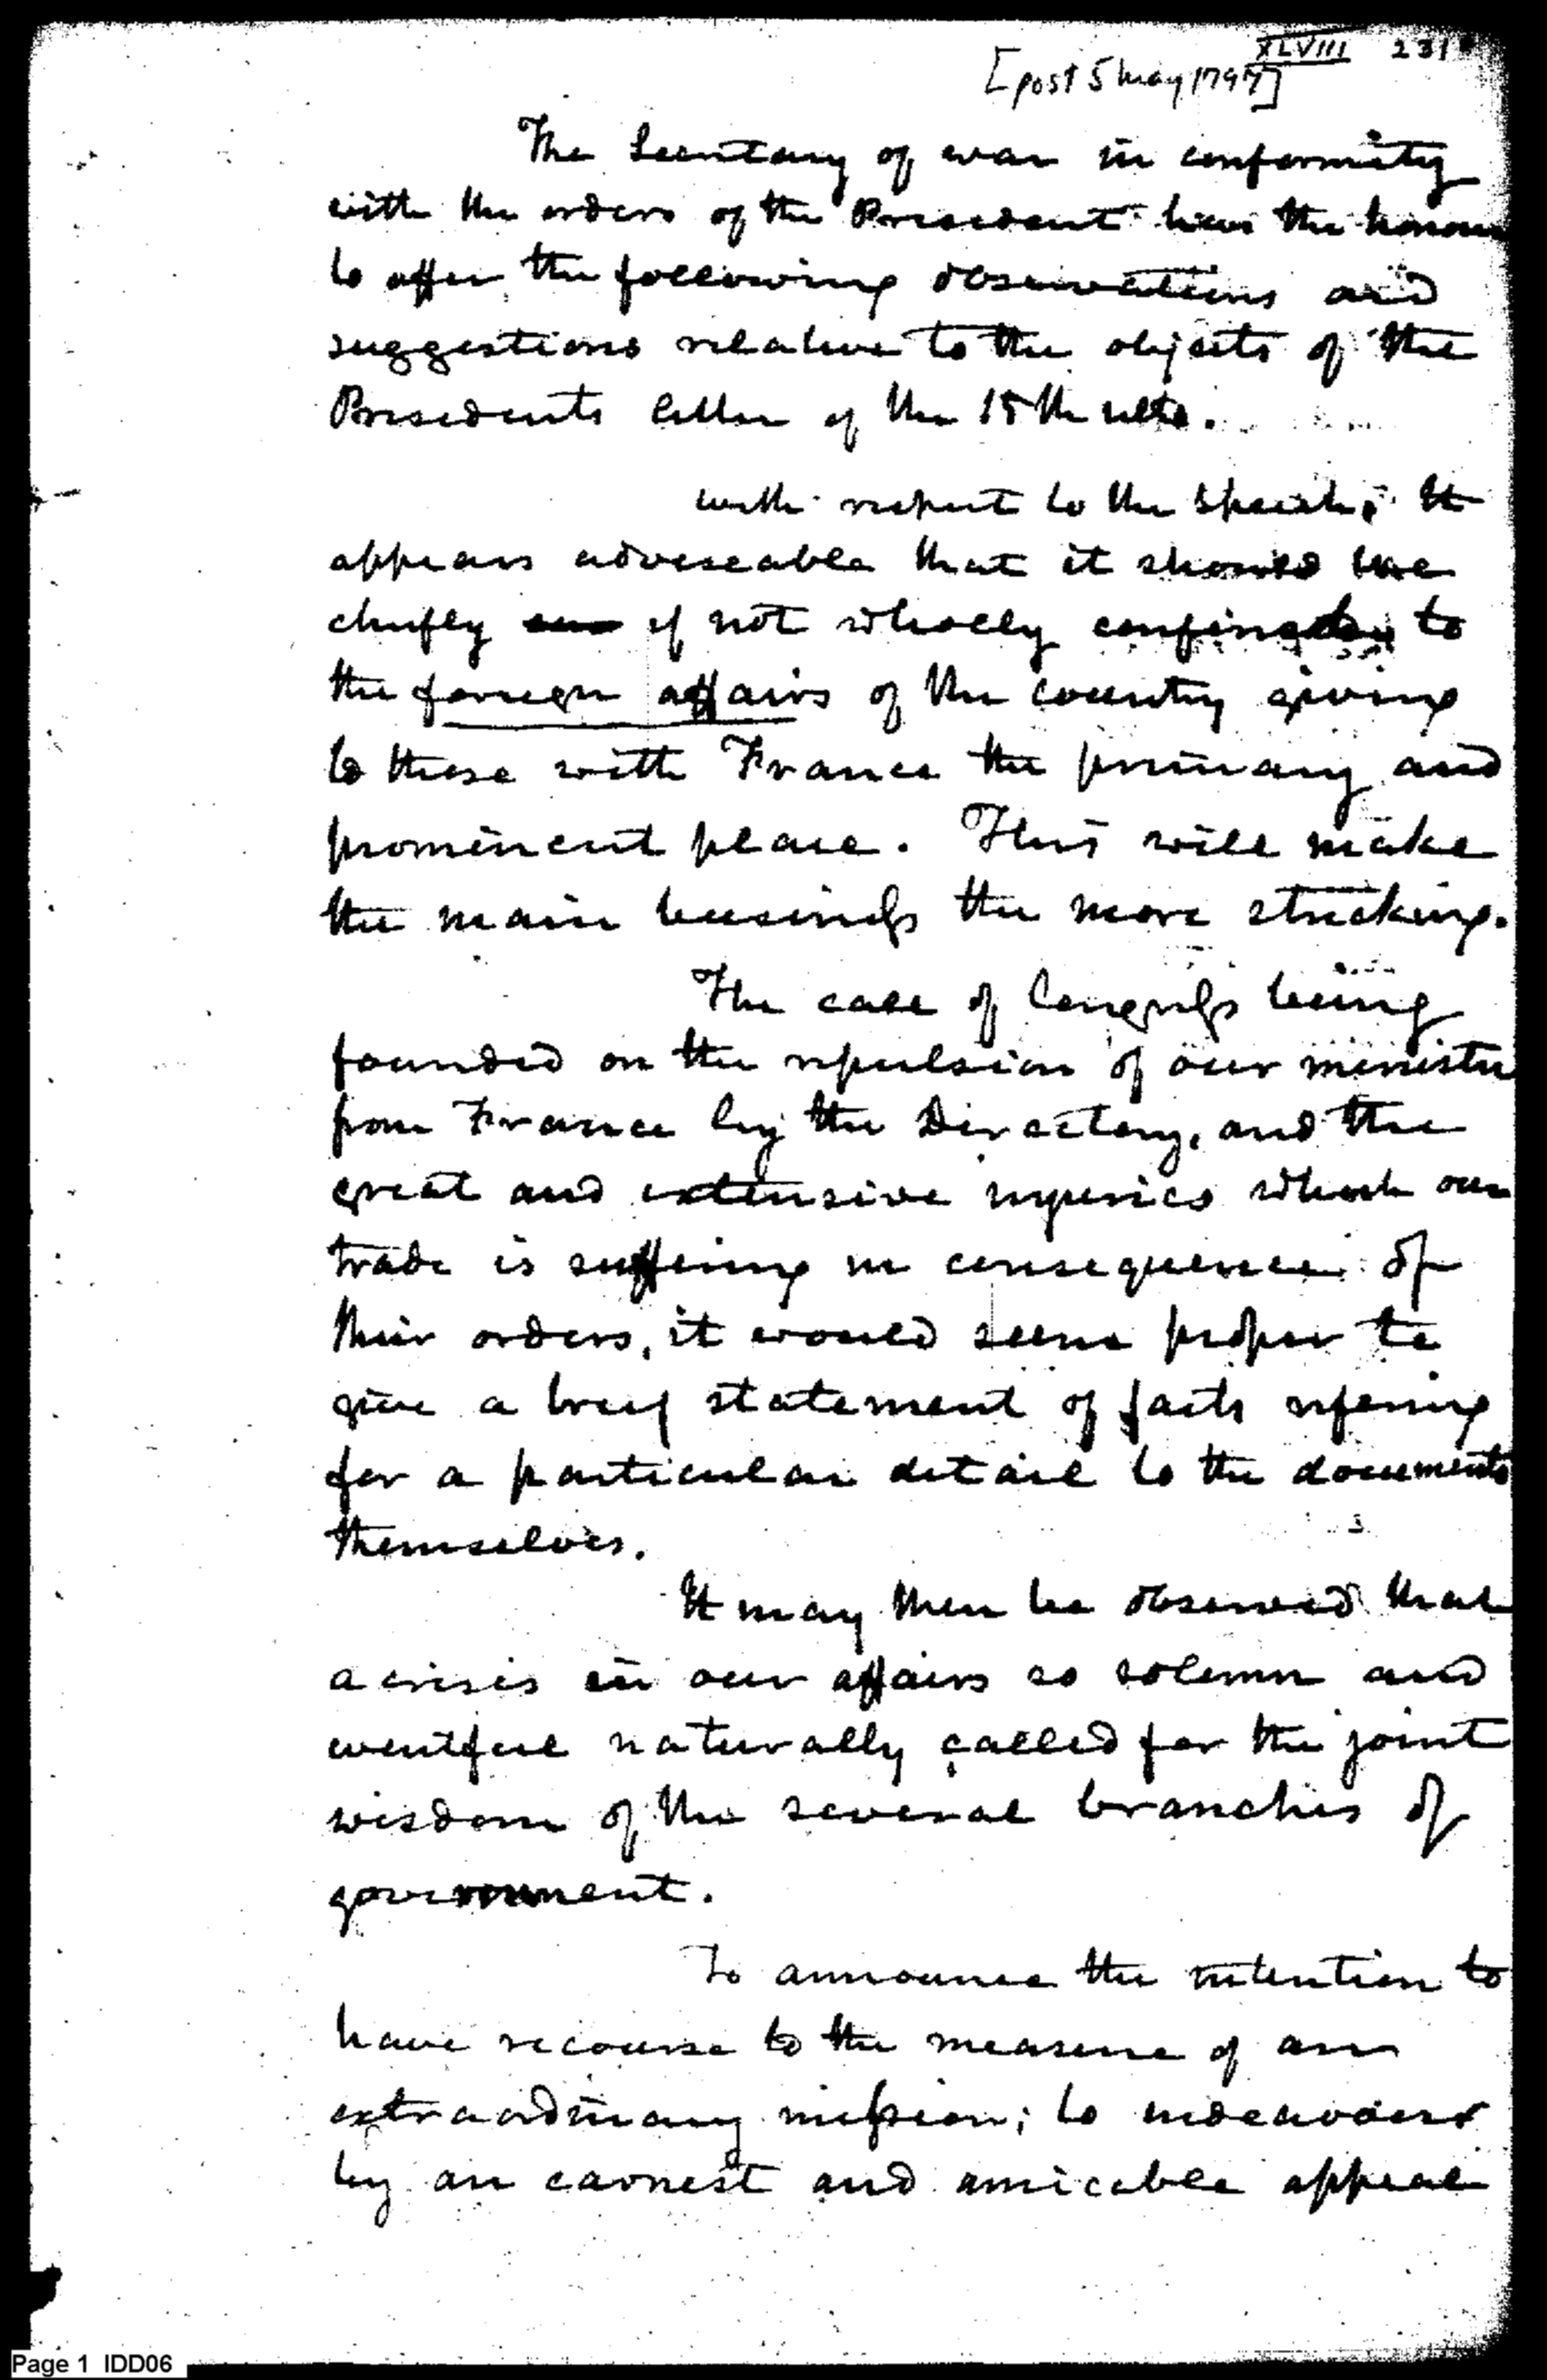 XLVIII 231
[post 5 May 1797]
The Secretary of war in conformity
with the orders of the President has the honour
to offer the following observations and
suggestions relative to the objects of the
Presidents letter of the 15th ulto.
with respect to the speech, It
appears adviseable that it should be
chiefly if not wholly confined to
the foreign affairs of the country giving
to those with France the primary and
prominent place. This will make
the main business the more striking.
The call of Congress being
founded on the repulsion of our minister
from France by the Directory, and the
great and extensive injuries which our
trade is suffering in consequence of
their orders, it would seem proper to
give a brief statement of facts refering
for a particular detail to the documents
themselves.
It may then be observed that
a crisis in our affairs so solemn and
eventful naturally called for the joint
wisdom of the several branches of
government.
To announce the intention to
have recourse to the measure of an
extraordinary mission; to endeavour
by an earnest and amicable appeal
Page 1 IDD06